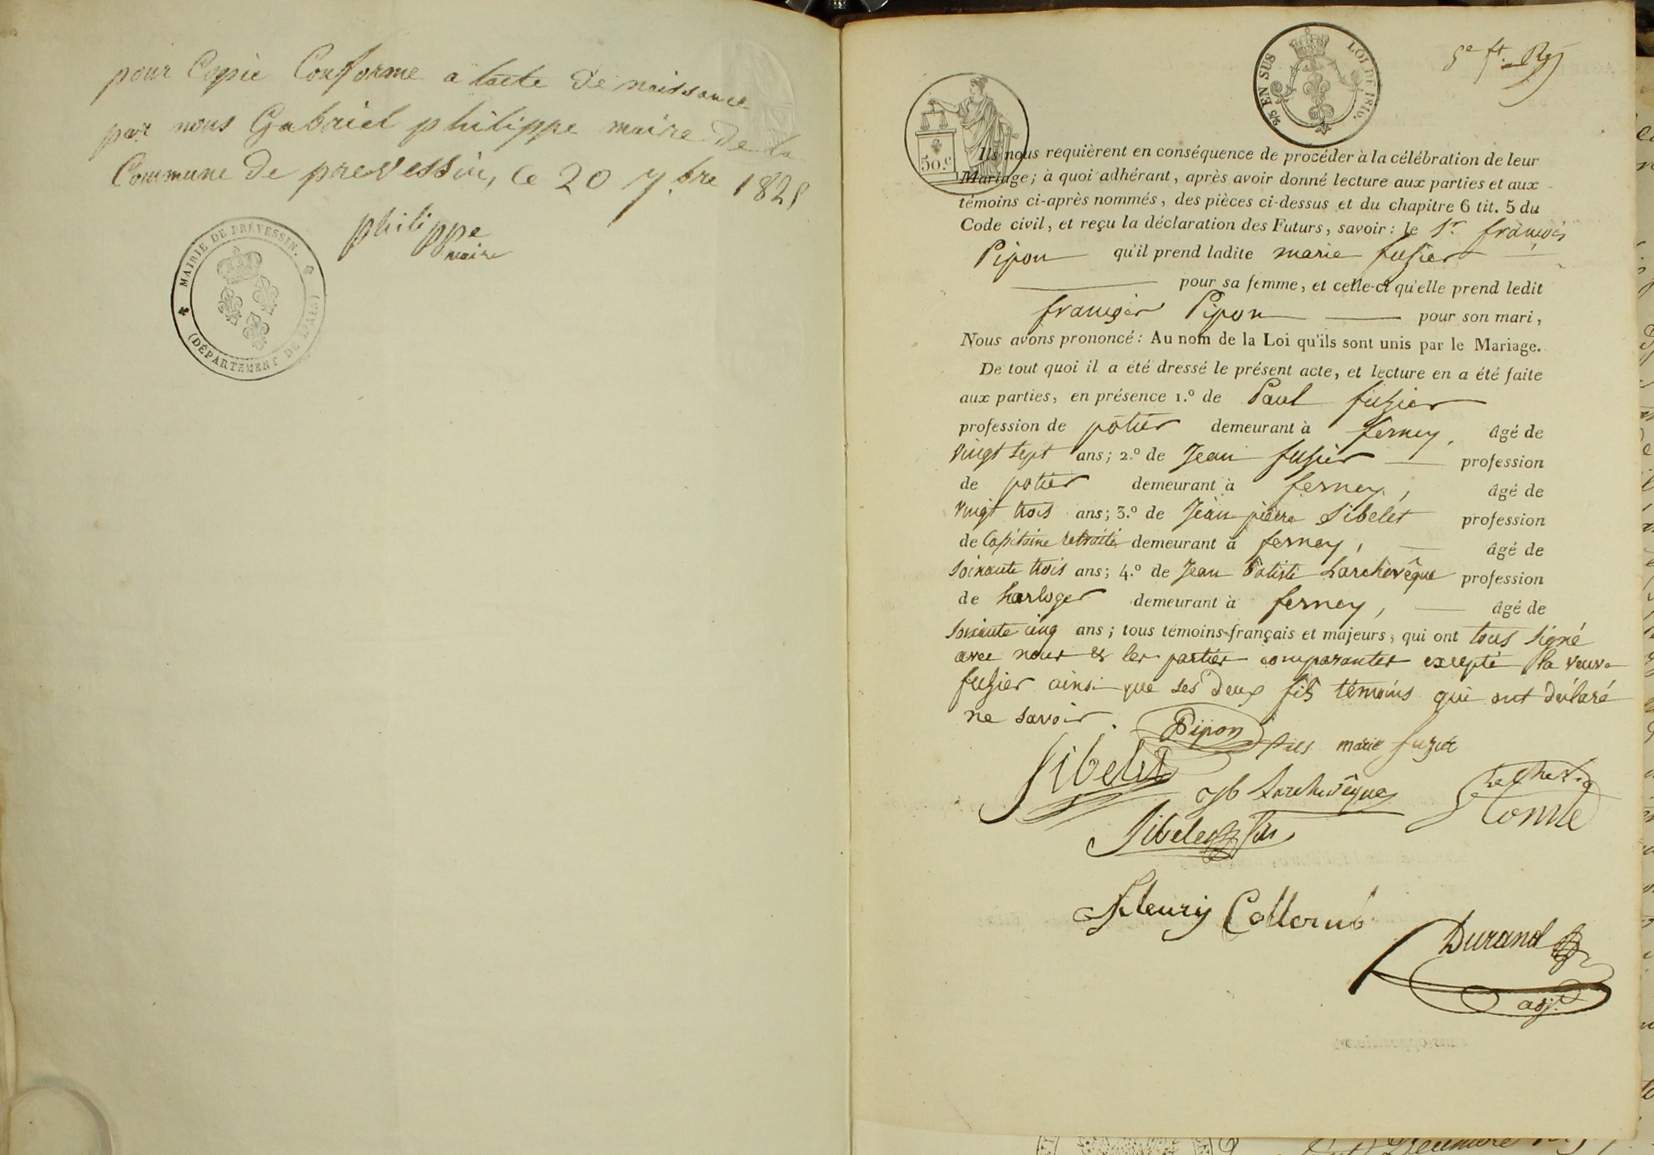 pour Copie Conforme a lacte de naissance
par nous Gabriel philippe maire de la
Commune de prevessin, ce 20 7.bre 1825
philippe
maire
MAIRIE DE PRÉVESSIN.
(DÉPARTEMENT DE L'AIN)
25 EN SUS
LOI DE 1816.
50.c
Ils nous requièrent en conséquence de procéder à la célébration de leur
Mariage; à quoi adhérant, après avoir donné lecture aux parties et aux
témoins ci-après nommés, des pièces ci-dessus et du chapitre 6 tit. 5 du
Code civil, et reçu la déclaration des Futurs, savoir: le Sr. françois
Pipon qu'il prend ladite marie fuzier
pour sa femme, et celle-ci qu'elle prend ledit
françois Pipon pour son mari,
Nous avons prononcé: Au nom de la Loi qu'ils sont unis par le Mariage.
De tout quoi il a été dressé le présent acte, et lecture en a été faite
aux parties, en présence 1.º de Paul fuzier
profession de potier demeurant à ferney, âgé de
vingt sept ans; 2.º de Jean fuzier profession
de potier demeurant à ferney, âgé de
vingt trois ans; 3.º de Jean pierre Sibelet profession
de Capitaine retraité demeurant à ferney, âgé de
soixante trois ans; 4.º de Jean Batiste Larchevêque profession
de horloger demeurant à ferney, âgé de
soixante cinq ans; tous témoins français et majeurs, qui ont tous signé
avec nous et les parties comparantes excepté la veuve
fuzier ainsi que ses deux fils témoins qui ont déclaré
ne savoir.
Pipon fils marie fuzier
Sibelet
JB Larchevêque
Le Chev.
Comte
Sibelet fils
Fleury Collerub
Durand
adj.